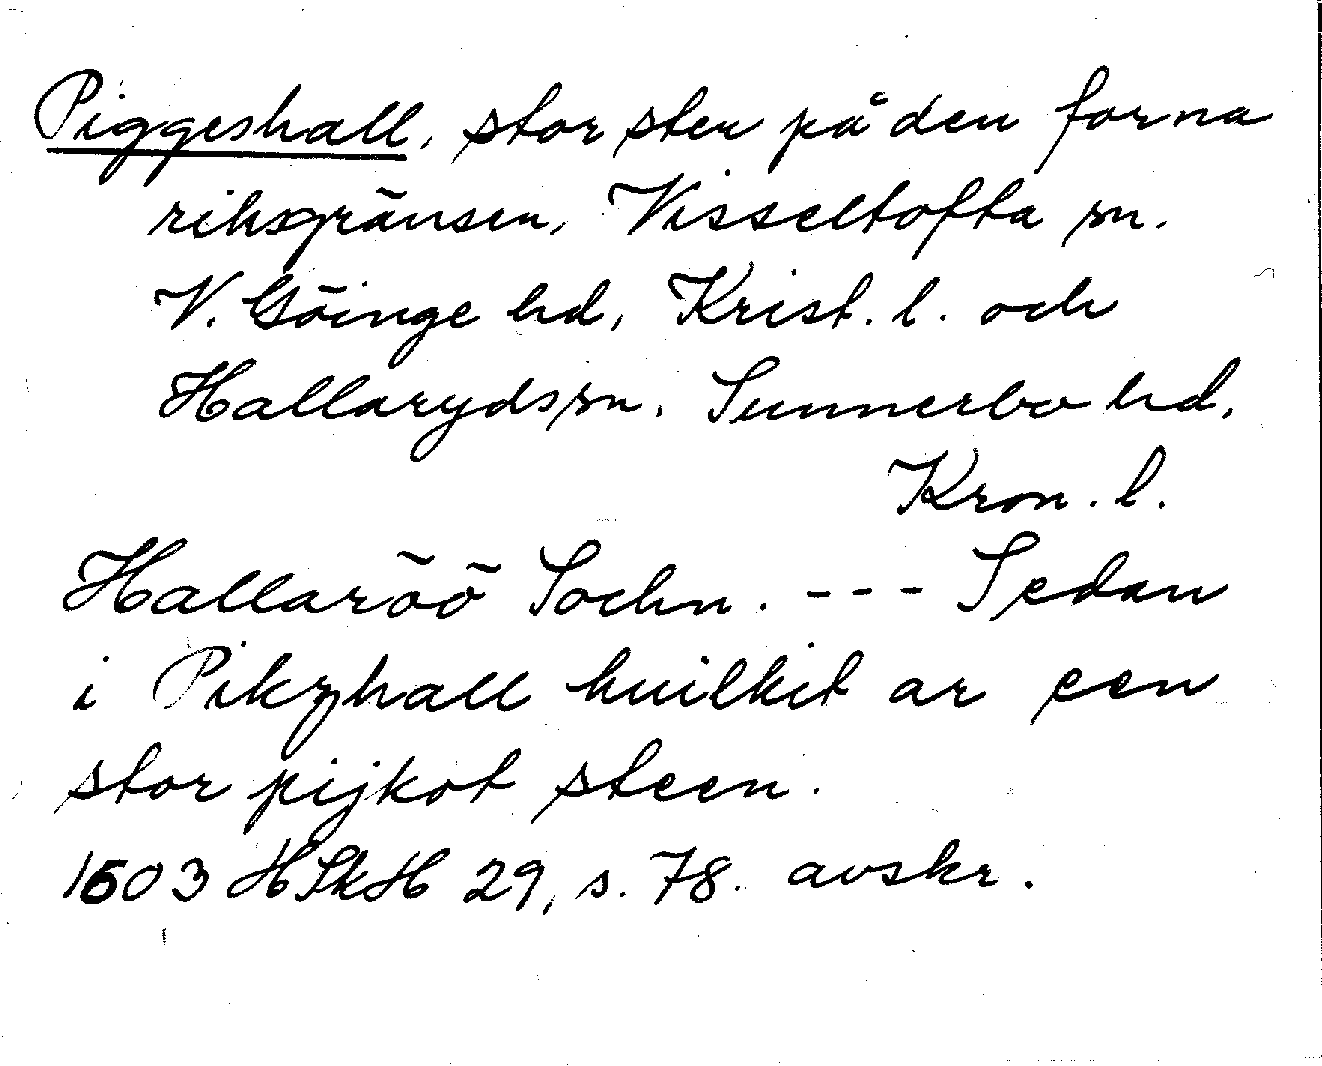 Piggeshall, stor sten på den forna
riksgränsen, Visseltofta sn.
V. Göinge hd, Krist. l. och
Hallaryds sn. Sunnerbo hd,
Kron. l.
Hallaröö Sochn. --- Sedan
i Pikzhall huilkit ar een
stor pijkot steen.
1503 HSkH 29, s. 78. avskr.